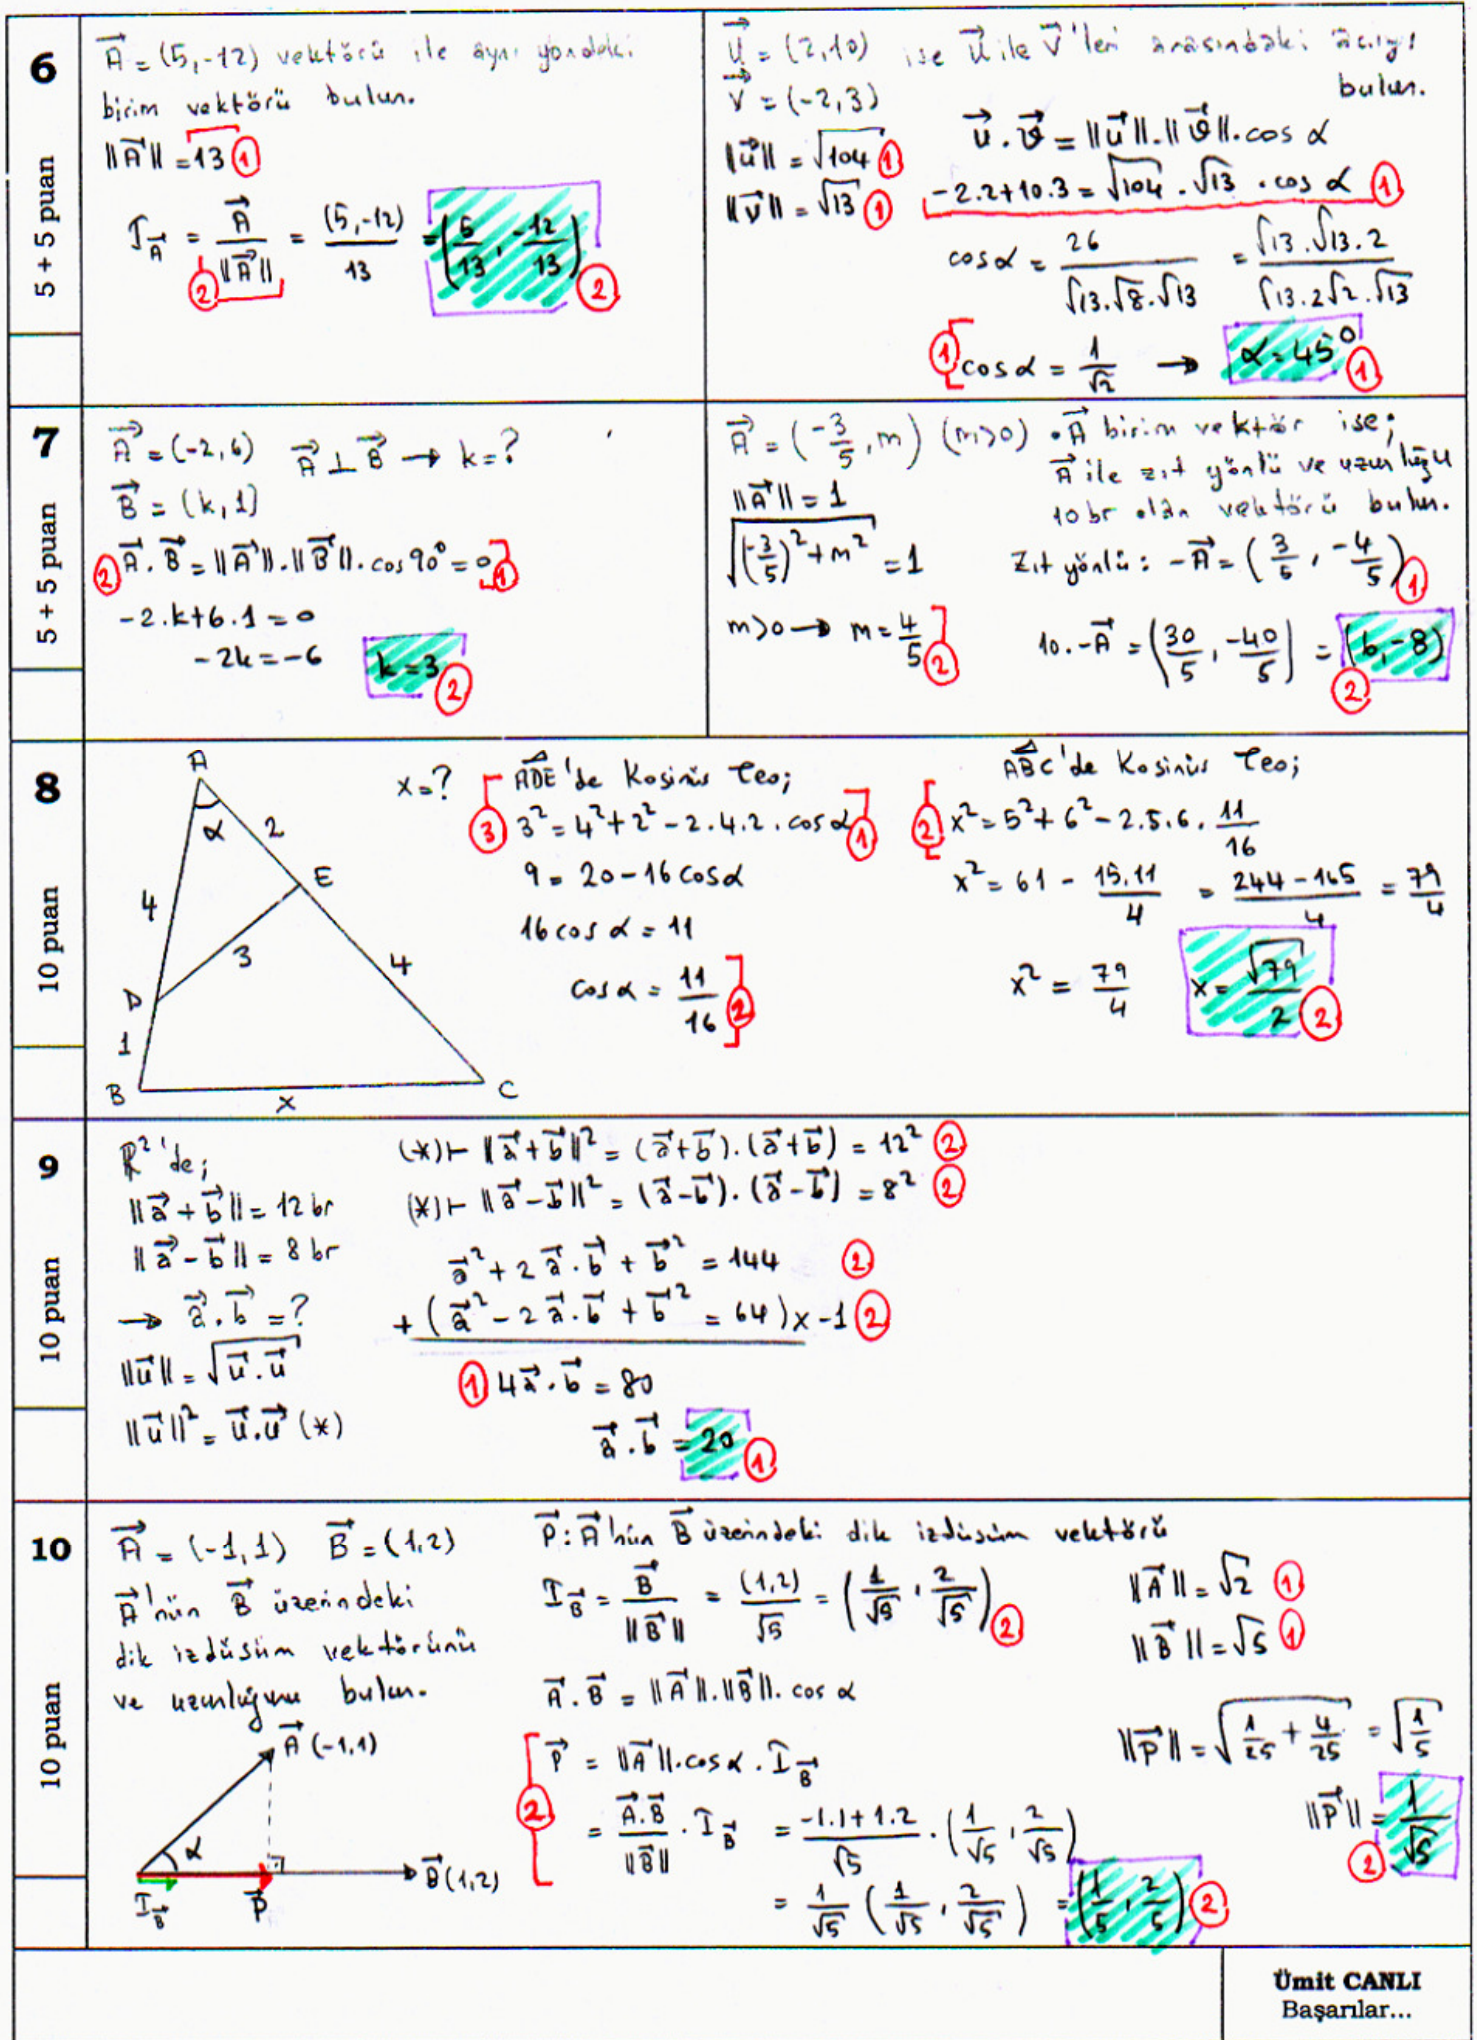 6
5 + 5 puan
A⃗ = (5,-12) vektörü ile aynı yöndeki
birim vektörü bulun.
||A⃗|| = 13 ①
I_A⃗ = A⃗/||A⃗|| ② = (5,-12)/13 = (5/13, -12/13) ②
u⃗ = (2,10) ise u⃗ ile v⃗'leri arasındaki açıyı
v⃗ = (-2,3) bulun.
||u⃗|| = √104 ①
||v⃗|| = √13 ①
u⃗.v⃗ = ||u⃗||.||v⃗||.cos α
-2.2+10.3 = √104.√13.cos α ①
cos α = 26/(√13.√8.√13) = (√13.√13.2)/(√13.2√2.√13)
① cos α = 1/√2 → α = 45° ①
7
5 + 5 puan
A⃗ = (-2,6) A⃗ ⊥ B⃗ → k=?
B⃗ = (k,1)
② A⃗.B⃗ = ||A⃗||.||B⃗||.cos 90° = 0 ①
-2.k+6.1 = 0
-2k = -6
k = 3 ②
A⃗ = (-3/5, m) (m>0) . A⃗ birim vektör ise;
A⃗ ile zıt yönlü ve uzunluğu
10 br olan vektörü bulun.
||A⃗|| = 1
√((-3/5)² + m²) = 1
m>0 → m = 4/5 ②
Zıt yönlü: -A⃗ = (3/5, -4/5) ①
10.-A⃗ = (30/5, -40/5) = (6,-8) ②
8
10 puan
A
α
2
E
4
3
4
D
1
B
x
C
x=?
③ ADE'de Kosinüs Teo;
3² = 4²+2²-2.4.2.cos α ①
9 = 20-16cos α
16cos α = 11
cos α = 11/16 ②
ABC'de Kosinüs Teo;
② x² = 5²+6²-2.5.6.11/16
x² = 61 - 15.11/4 = (244-165)/4 = 79/4
x² = 79/4 x = √79/2 ②
9
10 puan
R²'de;
||a⃗+b⃗|| = 12 br
||a⃗-b⃗|| = 8 br
→ a⃗.b⃗ = ?
||u⃗|| = √(u⃗.u⃗)
||u⃗||² = u⃗.u⃗ (*)
(*)⊢ ||a⃗+b⃗||² = (a⃗+b⃗).(a⃗+b⃗) = 12² ②
(*)⊢ ||a⃗-b⃗||² = (a⃗-b⃗).(a⃗-b⃗) = 8² ②
a⃗²+2a⃗.b⃗+b⃗² = 144 ②
+ (a⃗²-2a⃗.b⃗+b⃗² = 64)x-1 ②
① 4a⃗.b⃗ = 80
a⃗.b⃗ = 20 ①
10
10 puan
A⃗ = (-1,1) B⃗ = (1,2)
A⃗'nün B⃗ üzerindeki
dik izdüşüm vektörünü
ve uzunluğunu bulun.
A⃗ (-1,1)
α
B⃗ (1,2)
I_B⃗
P⃗
P⃗: A⃗'nün B⃗ üzerindeki dik izdüşüm vektörü
I_B⃗ = B⃗/||B⃗|| = (1,2)/√5 = (1/√5, 2/√5) ②
A⃗.B⃗ = ||A⃗||.||B⃗||.cos α
② P⃗ = ||A⃗||.cos α.I_B⃗
= A⃗.B⃗/||B⃗|| . I_B⃗ = (-1.1+1.2)/√5 . (1/√5, 2/√5)
= 1/√5 (1/√5, 2/√5) = (1/5, 2/5) ②
||A⃗|| = √2 ①
||B⃗|| = √5 ①
||P⃗|| = √(1/25 + 4/25) = √(1/5)
||P⃗|| = 1/√5 ②
Ümit CANLI
Başarılar...